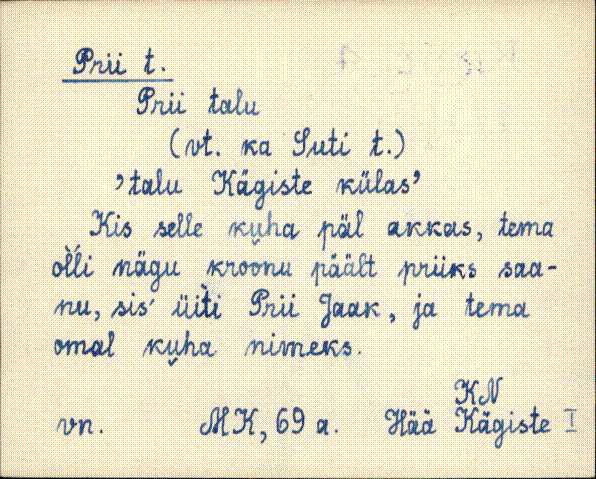 Prii t.
Prii talu
(vt. ka Suti t.)
’talu Kägiste külas’
Kis selle kuha päl akkas, tema
ol̀ĺi nägu kroonu päält priiks saa-
nu, sis' üit̀i Prii Jaak, ja tema
omal kuha nimeks.
KN
vn. MK, 69 a. Hää Kägiste I